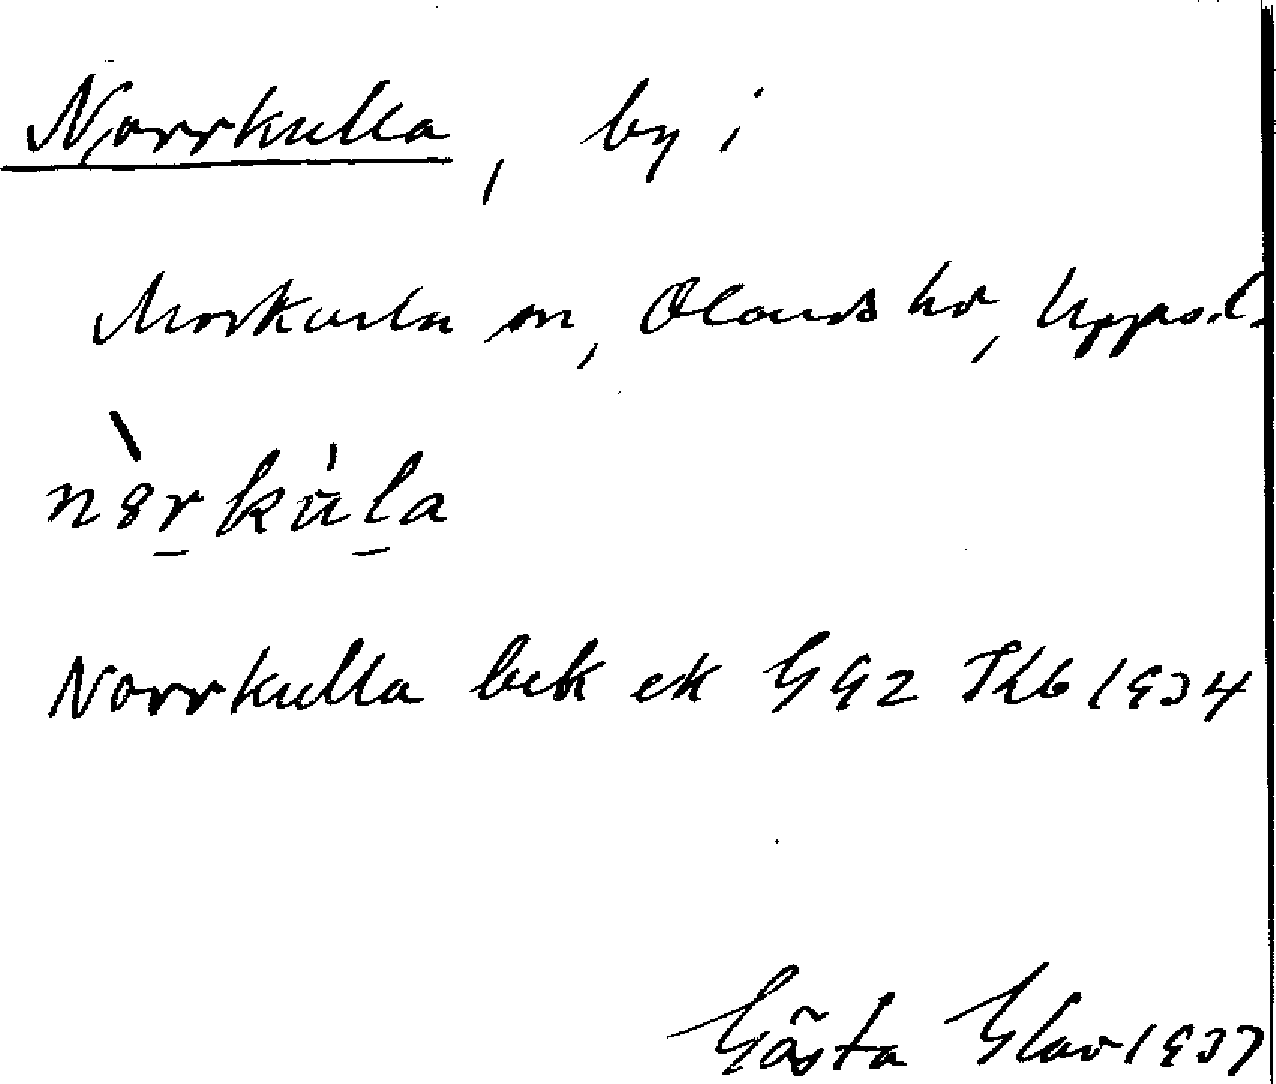 Norrkulla, by i
Morkarla sn, Olands hd, Upps.l.
nòrkùla
Norrkulla bek ek G G2 Tkb 1934
Gösta Glav 1937